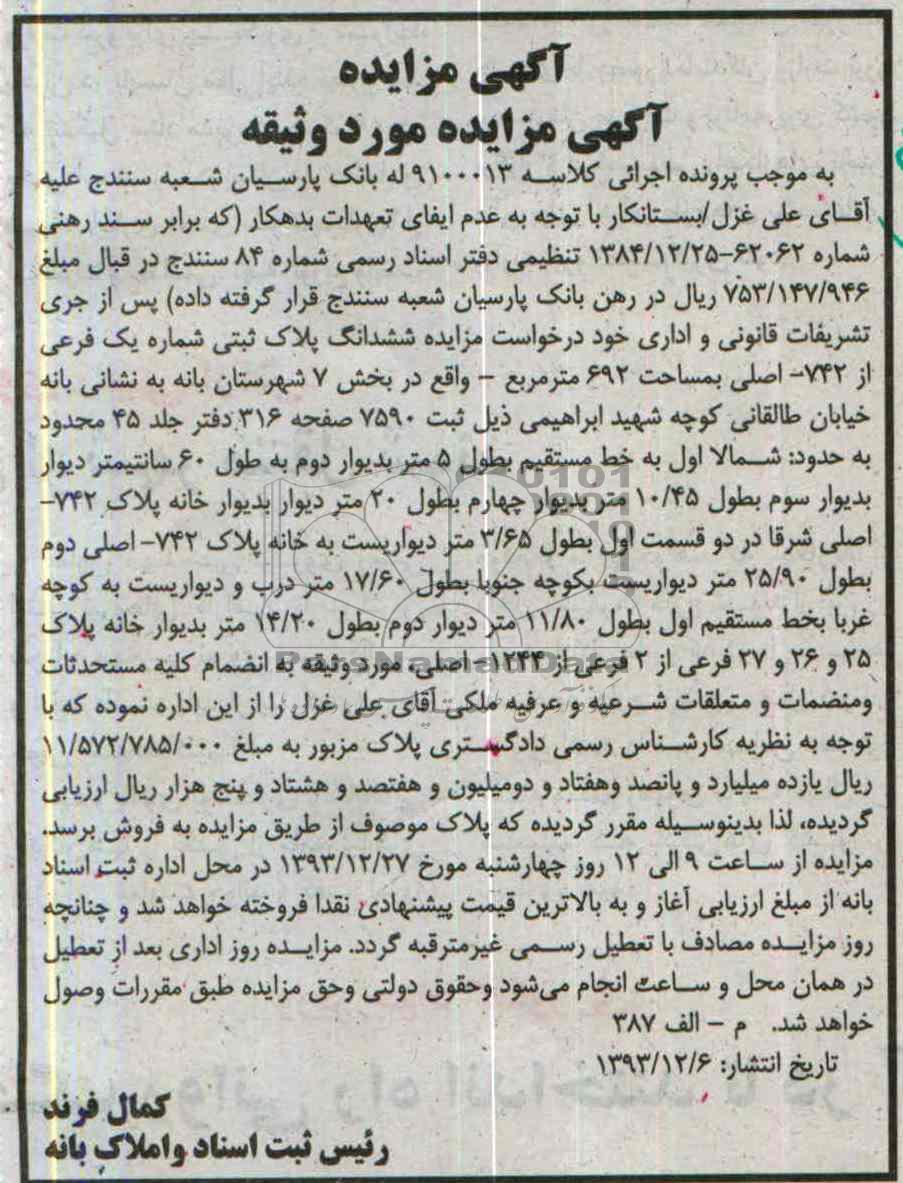 آگهی مزایده
آگهی مزایده مورد وثیقه
به موجب پرونده اجرائی کلاسه ۹۱۰۰۰۱۳ له بانک پارسیان شعبه سنندج علیه
آقای علی غزل/بستانکار با توجه به عدم ایفای تعهدات بدهکار (که برابر سند رهنی
شماره ۶۲۰۶۲-۱۳۸۴/۱۲/۲۵ تنظیمی دفتر اسناد رسمی شماره ۸۴ سنندج در قبال مبلغ
۷۵۳/۱۴۷/۹۴۶ ریال در رهن بانک پارسیان شعبه سنندج قرار گرفته داده) پس از جری
تشریفات قانونی و اداری خود درخواست مزایده ششدانگ پلاک ثبتی شماره یک فرعی
از ۷۴۲- اصلی بمساحت ۶۹۲ مترمربع - واقع در بخش ۷ شهرستان بانه به نشانی بانه
خیابان طالقانی کوچه شهید ابراهیمی ذیل ثبت ۷۵۹۰ صفحه ۳۱۶ دفتر جلد ۴۵ محدود
به حدود: شمالا اول به خط مستقیم بطول ۵ متر بدیوار دوم به طول ۶۰ سانتیمتر دیوار
بدیوار سوم بطول ۱۰/۴۵ متر بدیوار چهارم بطول ۲۰ متر دیوار بدیوار خانه پلاک ۷۴۲-
اصلی شرقا در دو قسمت اول بطول ۳/۶۵ متر دیواریست به خانه پلاک ۷۴۲- اصلی دوم
بطول ۲۵/۹۰ متر دیواریست بکوچه جنوبا بطول ۱۷/۶۰ متر درب و دیواریست به کوچه
غربا بخط مستقیم اول بطول ۱۱/۸۰ متر دیوار دوم بطول ۱۴/۲۰ متر بدیوار خانه پلاک
۲۵ و ۲۶ و ۲۷ فرعی از ۲ فرعی از ۱۲۴۴- اصلی، مورد وثیقه به انضمام کلیه مستحدثات
ومنضمات و متعلقات شرعیه و عرفیه ملکی آقای علی غزل را از این اداره نموده که با
توجه به نظریه کارشناس رسمی دادگستری پلاک مزبور به مبلغ ۱۱/۵۷۲/۷۸۵/۰۰۰
ریال یازده میلیارد و پانصد وهفتاد و دومیلیون و هفتصد و هشتاد و پنج هزار ریال ارزیابی
گردیده، لذا بدینوسیله مقرر گردیده که پلاک موصوف از طریق مزایده به فروش برسد.
مزایده از ساعت ۹ الی ۱۲ روز چهارشنبه مورخ ۱۳۹۳/۱۲/۲۷ در محل اداره ثبت اسناد
بانه از مبلغ ارزیابی آغاز و به بالاترین قیمت پیشنهادی نقدا فروخته خواهد شد و چنانچه
روز مزایده مصادف با تعطیل رسمی غیرمترقبه گردد. مزایده روز اداری بعد از تعطیل
در همان محل و ساعت انجام می‌شود وحقوق دولتی وحق مزایده طبق مقررات وصول
خواهد شد. م - الف ۳۸۷
تاریخ انتشار: ۱۳۹۳/۱۲/۶
کمال فرند
رئیس ثبت اسناد واملاک بانه
ParsNamadData